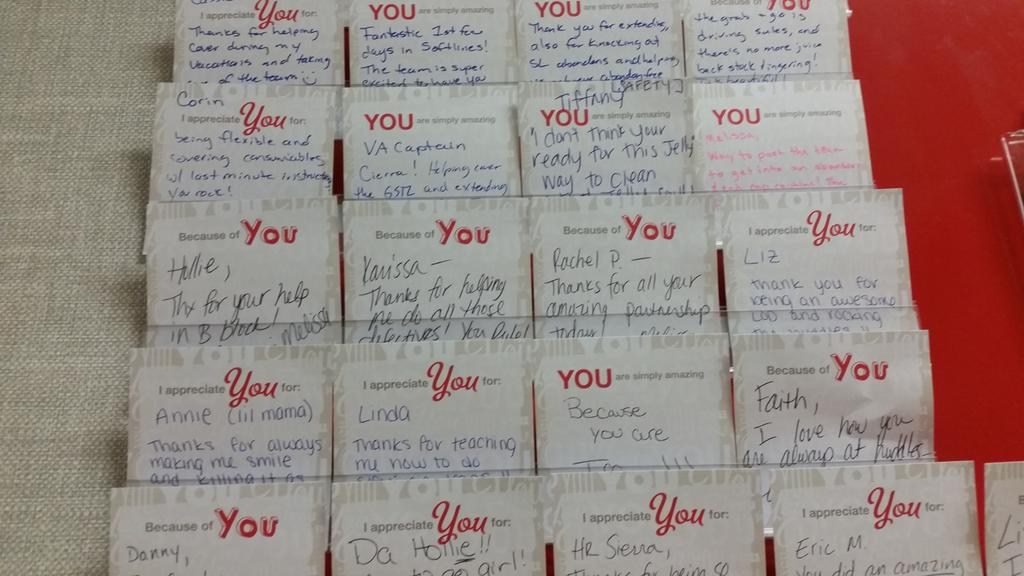 I appreciate You for:
Thanks for helping
cover during my
vacations and taking
of the team
YOU are simply amazing
Fantastic 1st few
days in Softlines!
The team is super
excited to have you
YOU are simply amazing
Thank you for extending,
also for knocking out
SL abandons and helping
abandon free
Because of YOU
the grab & go is
driving sales, and
there's no more juice
back stock lingering!
Corin
I appreciate You for:
being flexible and
covering consumables
w/ last minute instructions
You rock!
YOU are simply amazing
VA Captain
Cierra! Helping cover
the GSTL and extending
Tiffany [SAFETY]
YOU are simply amazing
"I don't think your
ready for this Jelly"
way to clean
YOU are simply amazing
Melissa,
Way to push the team
to get into an abandon
Because of YOU
Hollie,
Thx for your help
in B Block! Melissa
Because of YOU
Karissa —
Thanks for helping
me do all those
directives! You Rule!
Because of YOU
Rachel P. —
Thanks for all your
amazing partnership
today!
I appreciate You for:
LIZ
thank you for
being an awesome
LOD and rocking
I appreciate You for:
Annie (lil mama)
Thanks for always
making me smile
and killing it as
I appreciate You for:
Linda
Thanks for teaching
me how to do
YOU are simply amazing
Because
you are
Because of YOU
Faith,
I love how you
are always at huddles
Because of YOU
Danny,
I appreciate You for:
Da Hollie!!
girl!
I appreciate You for:
HR Sierra,
Thanks for being so
I appreciate You for:
Eric M.
You did an amazing